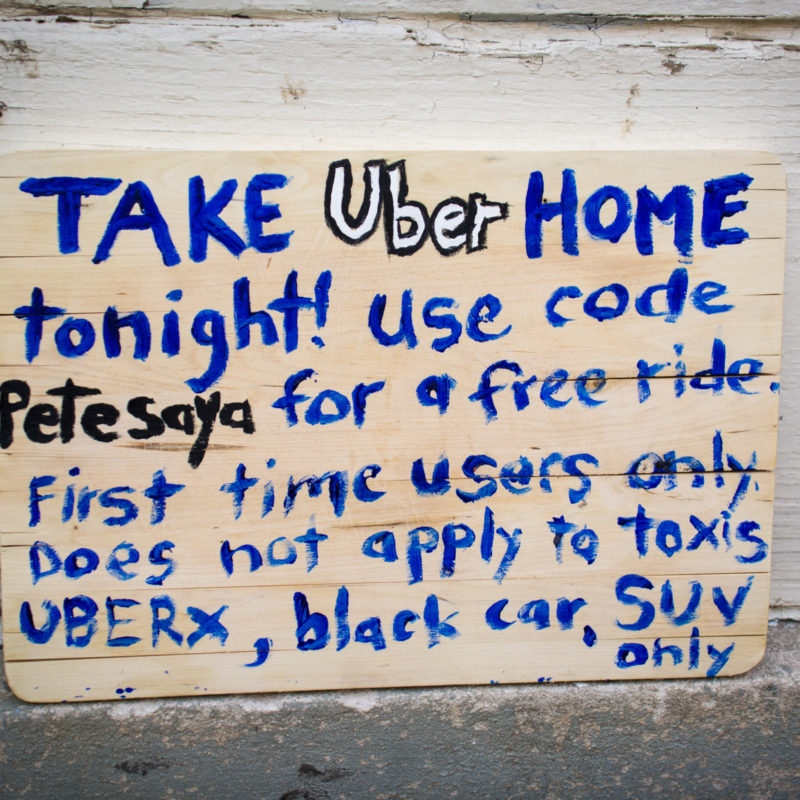 TAKE Uber HOME
tonight! use code
Petesaya for a free ride.
First time users only.
Does not apply to toxis
UBERX, black car, SUV
only